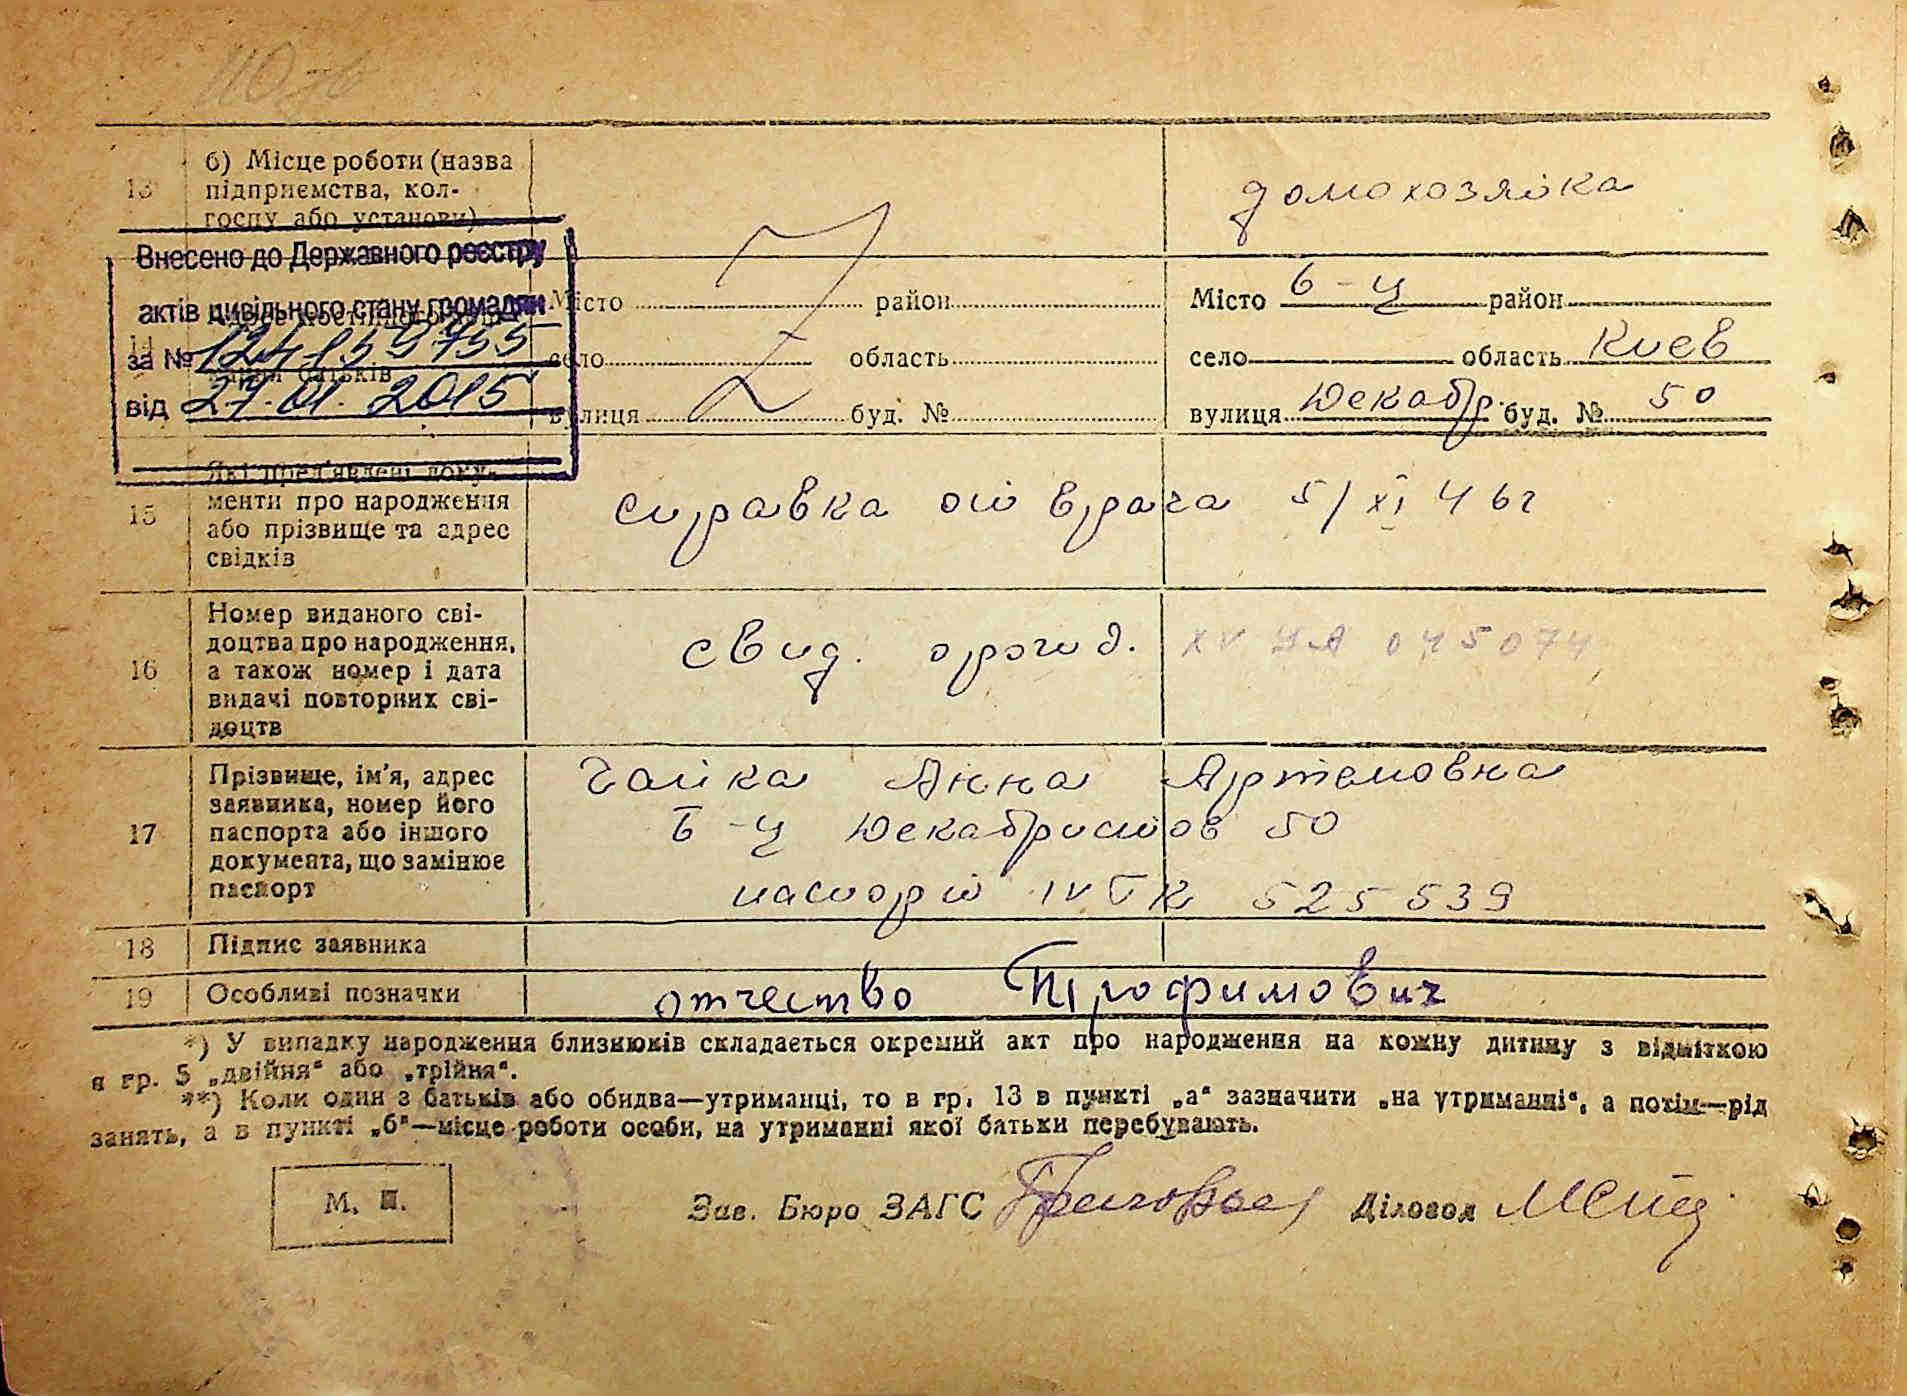 13 б) Місце роботи (назва підприємства, кол-госпу або установи)
домохозяйка
Внесено до Державного реєстру
актів цивільного стану громадян
за № 124159755
від 27.01.2015
14
батьків
Місто район
село область
вулиця буд. №
Місто б-ц район
село область Киев
вулиця Декабр. буд. № 50
15 Які пред'явлені доку-
менти про народження
або прізвище та адрес
свідків
справка от врача 5/XI 46г
16 Номер виданого сві-
доцтва про народження,
а також номер і дата
видачі повторних сві-
доцтв
свид. о рожд. XV 045074
17 Прізвище, ім'я, адрес
заявника, номер його
паспорта або іншого
документа, що замінює
паспорт
Чайка Анна Артемовна
Б-Ц Декабристов 50
паспорт IV ГК 525539
18 Підпис заявника
19 Особливі позначки
отчество Трофимович
*) У випадку народження близнюків складається окремий акт про народження на кожну дитину з відміткою
в гр. 5 „двійня“ або „трійня“.
**) Коли один з батьків або обидва—утриманці, то в гр. 13 в пункті „а“ зазначити „на утриманні“, а потім—рід
занять, а в пункті „б“—місце роботи особи, на утриманні якої батьки перебувають.
М. П.
Зав. Бюро ЗАГС Діловод